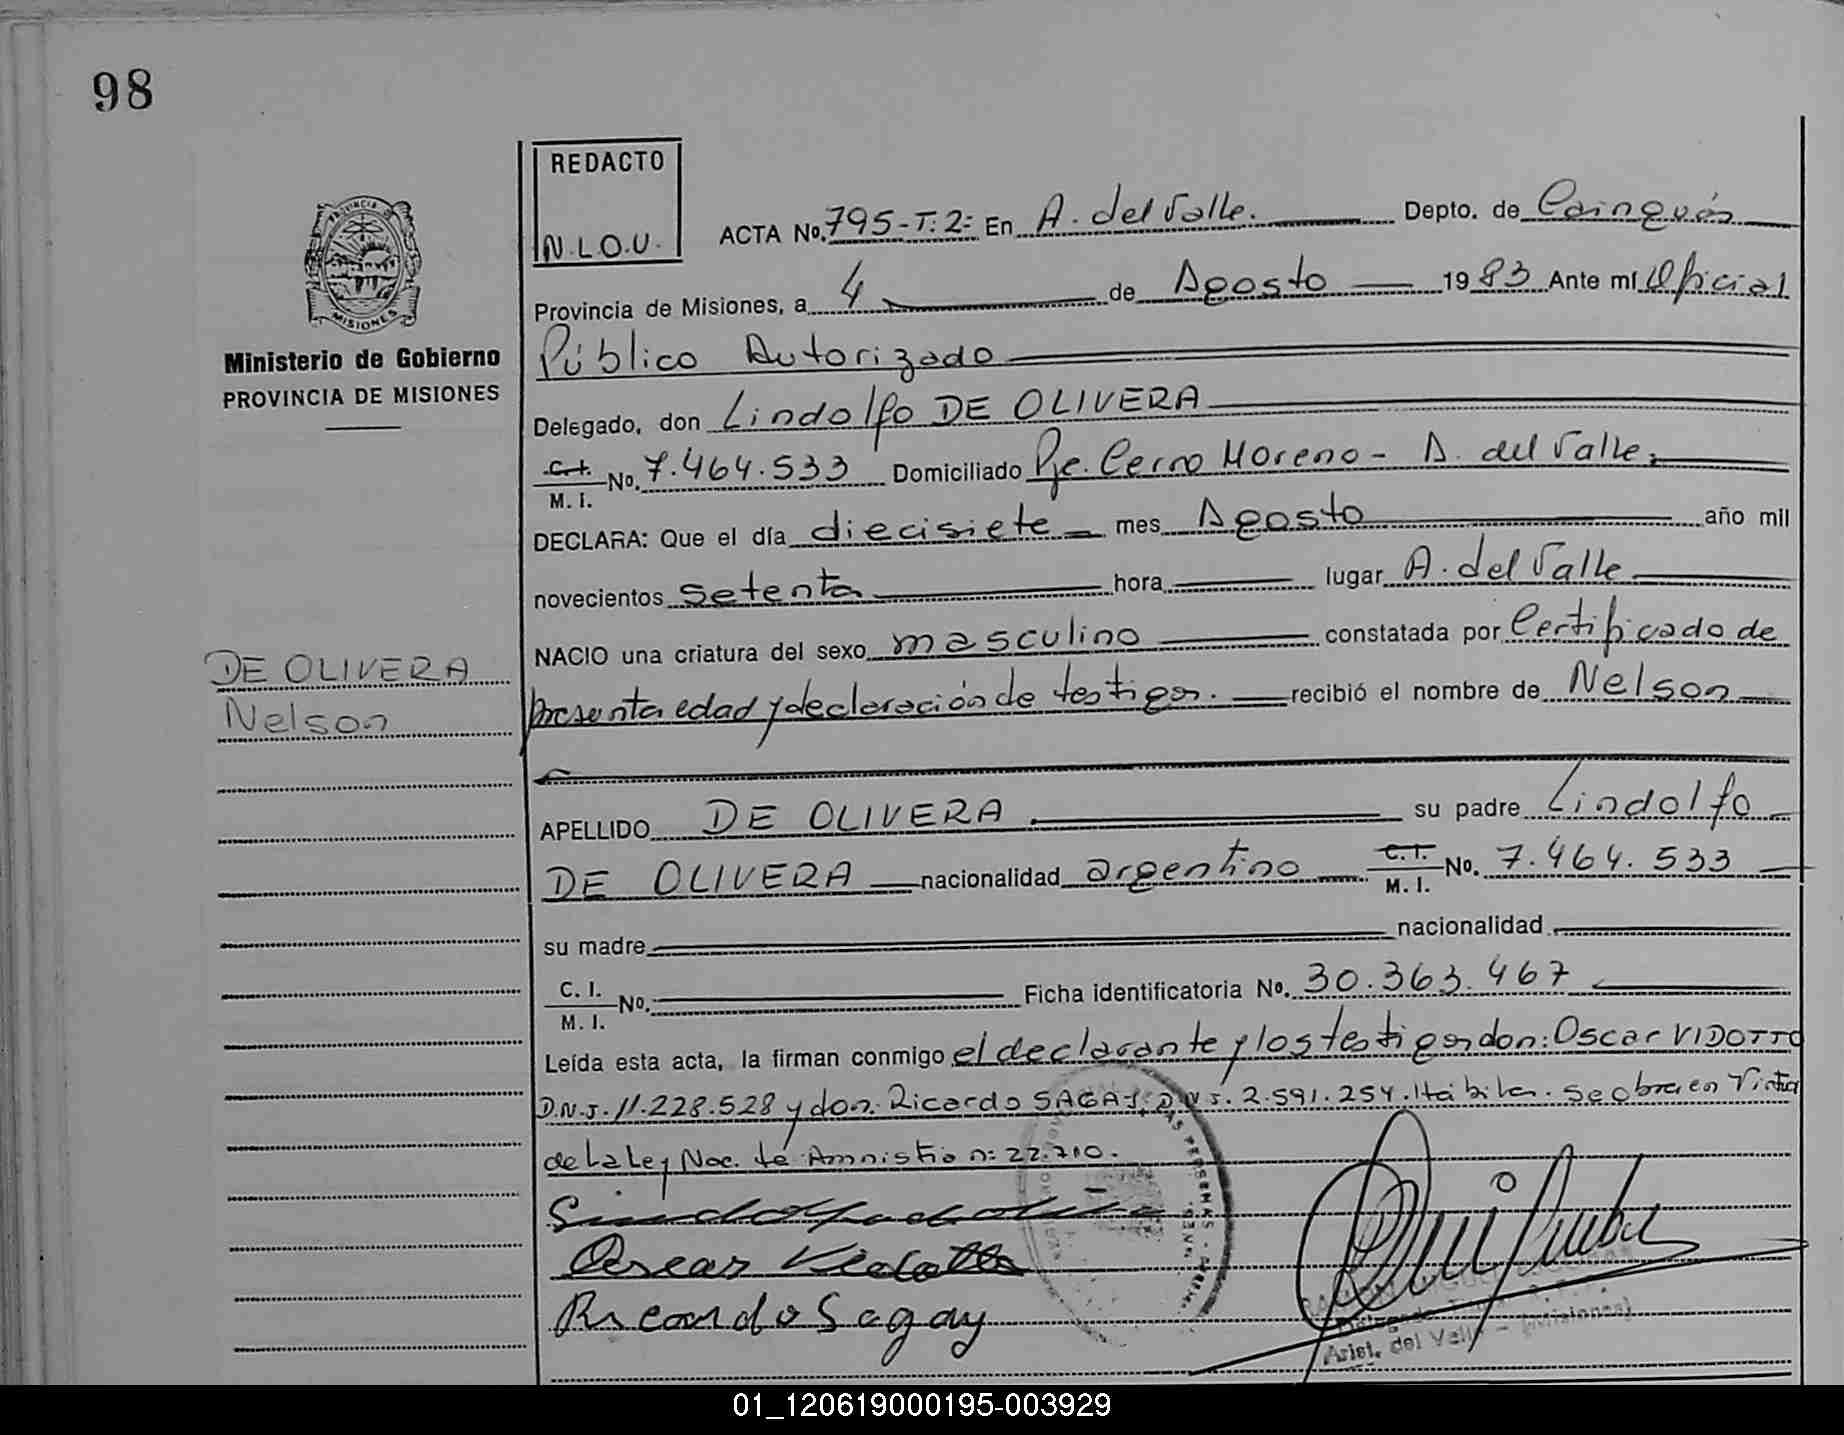 98
REDACTO
N.L.O.U.
ACTA No. 795-T:2: En A. del Valle. Depto. de Cainguás
Provincia de Misiones, a 4 de Agosto 1983 Ante mí Oficial
Público Autorizado
Delegado, don Lindolfo DE OLIVERA
C.I. M.I. No. 7.464.533 Domiciliado Pje. Cerro Moreno - A. del Valle.
DECLARA: Que el día diecisiete mes Agosto año mil
novecientos setenta hora lugar A. del Valle
NACIO una criatura del sexo masculino constatada por Certificado de
presunta edad y declaración de testigos. recibió el nombre de Nelson
APELLIDO DE OLIVERA su padre Lindolfo
DE OLIVERA nacionalidad argentino C.I. M.I. No. 7.464.533
su madre nacionalidad
C.I. M.I. No. Ficha identificatoria No. 30.363.467
Leída esta acta, la firman conmigo el declarante y los testigos don: Oscar VIDOTTO
D.N.I. 11.228.528 y don. Ricardo SAGAY, D.N.I. 2.591.254. Hábiles. Se obra en Virtud
de la Ley Nac. de Amnistia n: 22.710.
Oscar
Ricardo Sagay
Arist. del Valle - (Misiones)
MISIONES
Ministerio de Gobierno
PROVINCIA DE MISIONES
DE OLIVERA
Nelson
01_120619000195-003929